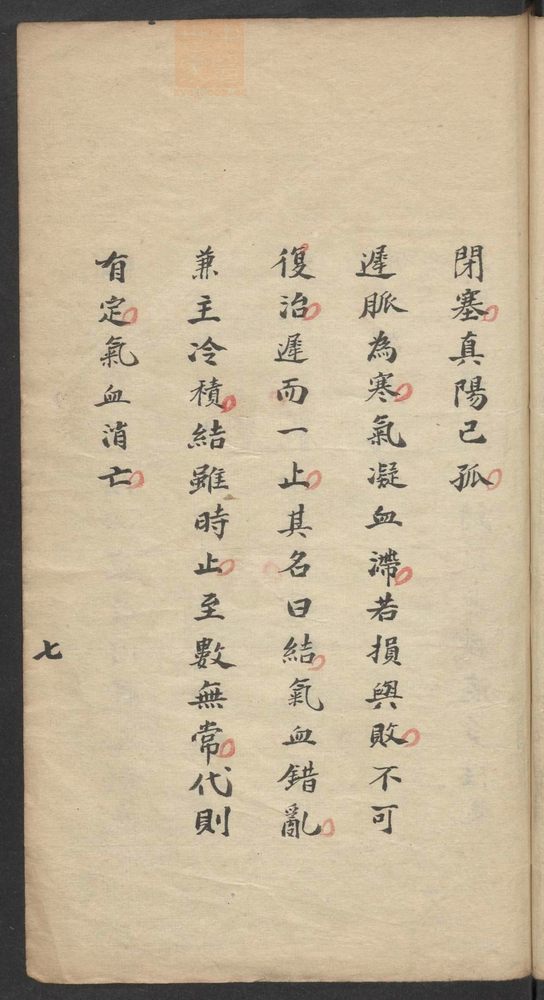 閉塞真陽已孤
遲脈為寒氣凝血滯若損與敗不可
復治遲而一止其名曰結氣血錯亂
兼主冷積結雖時止至數無常代則
有定氣血消亡
七